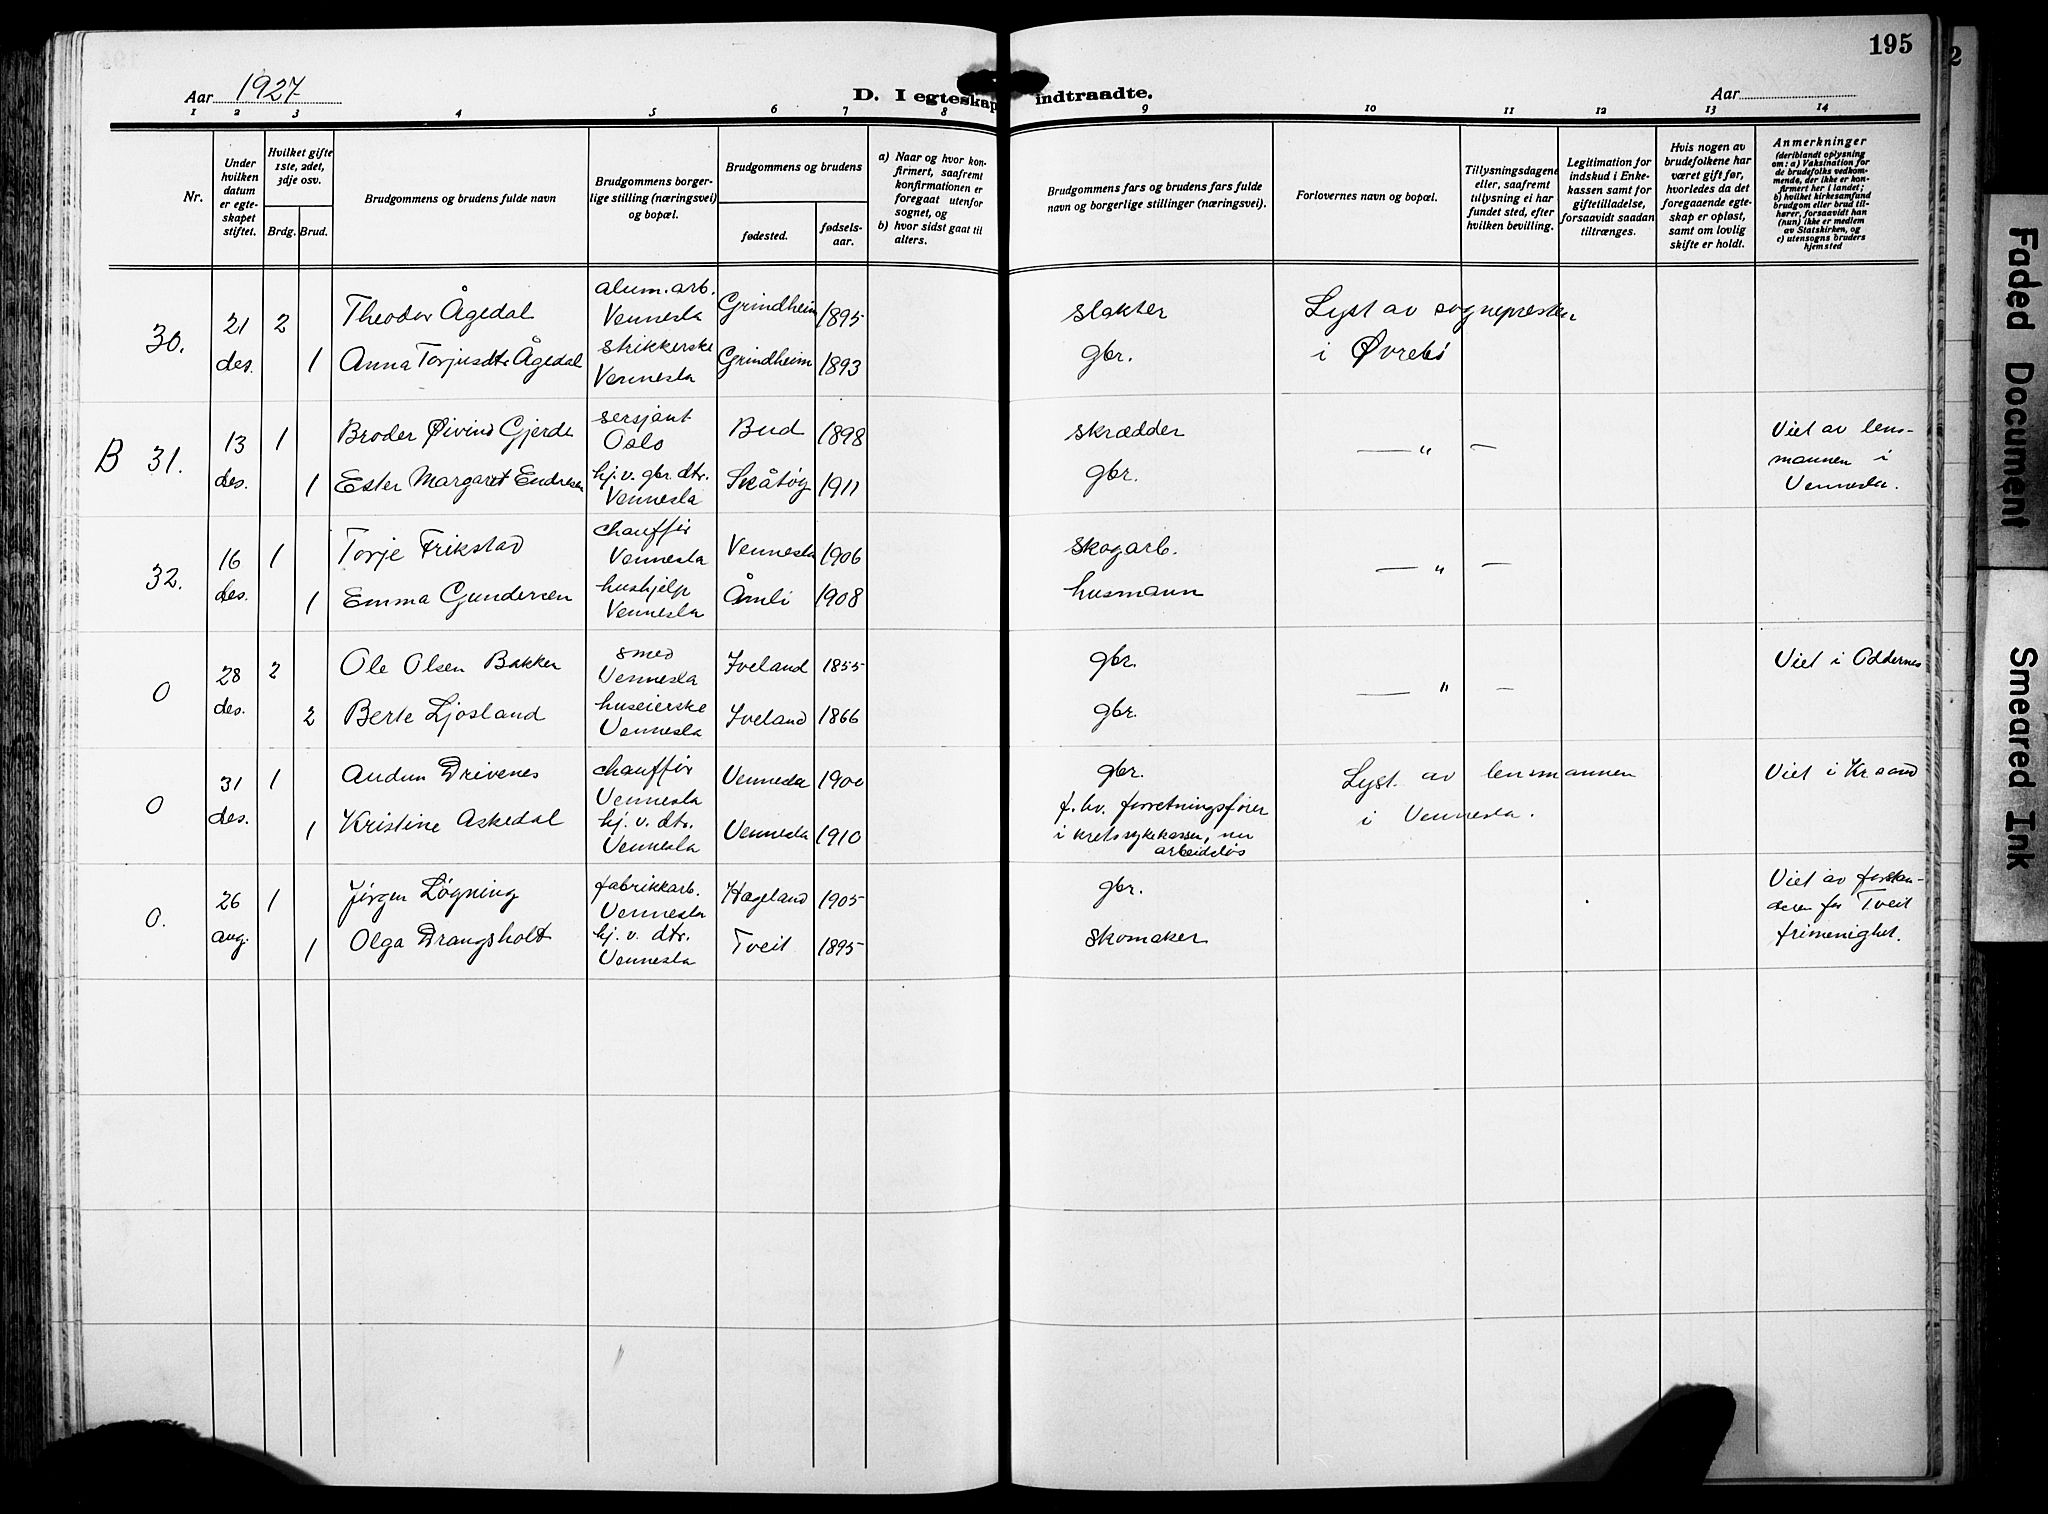 195
2
Aar 1927
D. I egteskap indtraadte.
Aar
1 2 3 4 5 6 7 8 9 10 11 12 13 14
Nr.
Under hvilken datum er egteskapet stiftet.
Hvilket gifte 1ste, 2det, 3dje osv.
Brdg. Brud.
Brudgommens og brudens fulde navn
Brudgommens borgerlige stilling (næringsvei) og bopæl.
Brudgommens og brudens
fødested.
fødselsaar.
a) Naar og hvor konfirmert, saafremt konfirmationen er foregaat utenfor sognet, og
b) hvor sidst gaat til alters.
Brudgommens fars og brudens fars fulde navn og borgerlige stillinger (næringsvei).
Forlovernes navn og bopæl.
Tillysningsdagene eller, saafremt tillysning ei har fundet sted, efter hvilken bevilling.
Legitimation for indskud i Enkekassen samt for giftetilladelse, forsaavidt saadan tiltrænges.
Hvis nogen av brudefolkene har været gift før, hvorledes da det foregaaende egteskap er opløst, samt om lovlig skifte er holdt.
Anmerkninger
(deriblandt oplysning om: a) Vaksination for de brudefolks vedkommende, der ikke er konfirmert her i landet;
b) hvilket kirkesamfund brudgom eller brud tilhører, forsaavidt han (hun) ikke er medlem av Statskirken, og
c) utensogns bruders hjemsted
30. 21 des. 2 Theodor Ågedal alum. arb. Vennesla Grindheim 1895 slakter Lyst av sognepresten
1 Anna Torjusdtr Ågedal strikkerske Vennesla Grindheim 1893 gbr. i Øvrebø
B 31. 13 des. 1 Broder Øivind Gjerde sersjant Oslo Bud 1898 skrædder — " — Viet av lensmannen i Vennesla.
1 Ester Margaret Endresen hj. v. gbr. dtr. Vennesla Skåtøy 1911 gbr.
32. 16 des. 1 Torje Frikstad chauffør Vennesla Vennesla 1906 skogarb. — " —
1 Emma Gundersen hushjelp Vennesla Åmli 1908 husmann
0 28 des. 2 Ole Olsen Bakken smed Vennesla Iveland 1855 gbr. — " — Viet i Oddernes
2 Berte Ljosland huseierske Vennesla Iveland 1866 gbr.
0 31 des. 1 Audun Drivenes chauffør Vennesla Vennesla 1900 gbr. Lyst. av lensmannen i Vennesla. Viet i Kr.sand
1 Kristine Askedal hj. v. dtr. Vennesla Vennesla 1910 f. hv. forretningsfører i kretssykekassen, nu arbeidsløs
0. 26 aug. 1 Jørgen Løgning fabrikkarb. Vennesla Hægeland 1905 gbr. Viet av forstanderen for Tveit frimenighet.
1 Olga Drangsholt hj. v. dtr. Vennesla Tveit 1895 skomaker
Faded Document
Smeared Ink